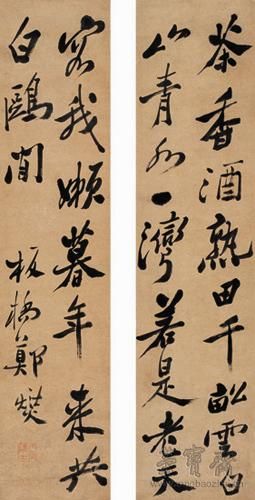 茶香酒熟田千畝雲白
山青水一灣若是老天
容我嬾暮年來共
白鷗閒 板橋鄭燮